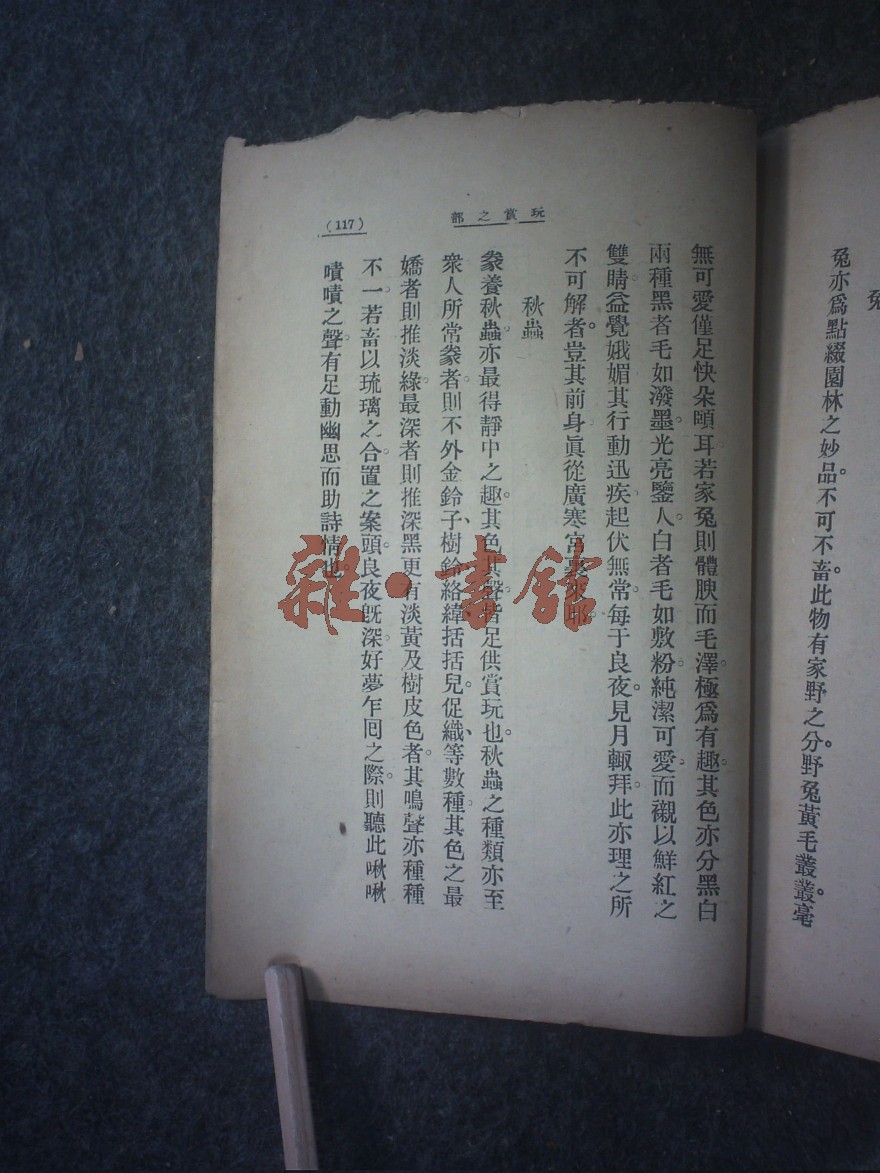 兔
兔亦爲點綴園林之妙品。不可不畜。此物有家野之分。野兔黃毛叢叢。毫
玩賞之部
(117)
無可愛僅足快朵頤耳若家兔則體腴而毛澤。極爲有趣。其色亦分黑白
兩種黑者毛如潑墨。光亮鑒人。白者毛如敷粉。純潔可愛。而襯以鮮紅之
雙睛。益覺娥媚其行動迅疾。起伏無常。每于良夜。見月輒拜。此亦理之所
不可解者。豈其前身眞從廣寒宮裏來耶。
秋蟲
豢養秋蟲。亦最得靜中之趣。其色其聲。皆足供賞玩也。秋蟲之種類亦至
衆人所常豢者。則不外金鈴子、樹鈴、絡緯、括括兒。促織、等數種。其色之最
嬌者則推淡綠。最深者則推深黑更有淡黃及樹皮色者。其鳴聲亦種種
不一。若畜以琉璃之合。置之案頭。良夜旣深。好夢乍囘之際。則聽此啾啾
嘖嘖之聲。有足動幽思而助詩情也。
雜·書館